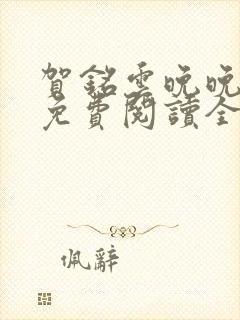 賀銘雲晚晚
免費閱讀全
佩辭